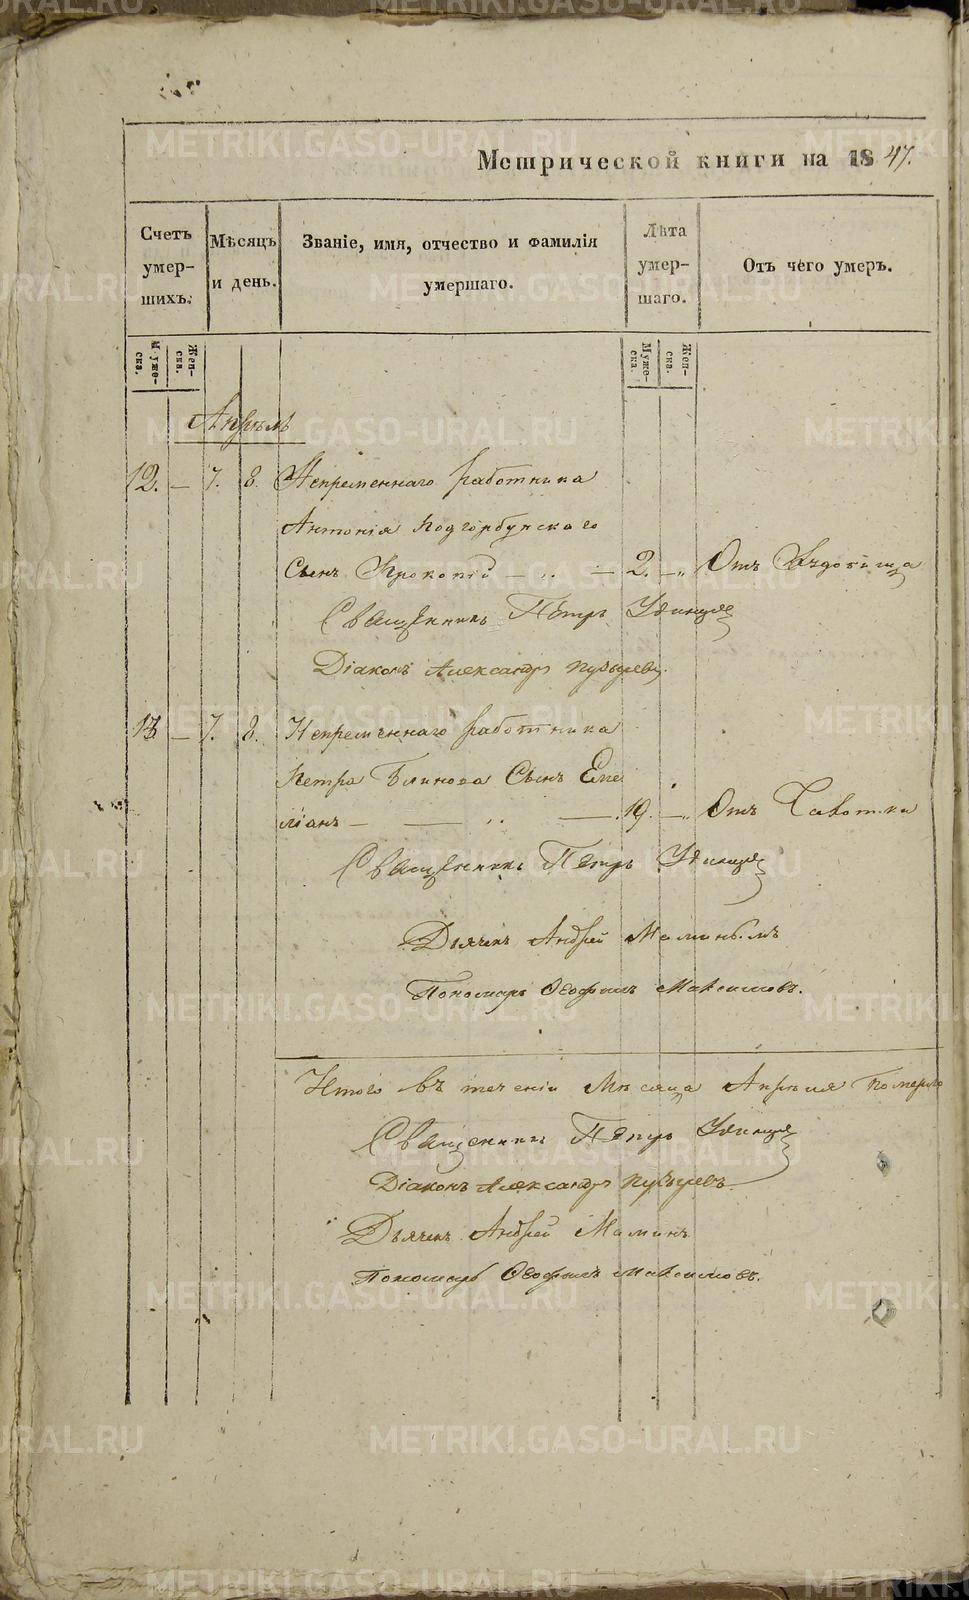 Метрической книги на 1847.
Счетъ умер-шихъ.
Мѣсяцъ и день.
Званіе, имя, отчество и фамилія умершаго.
Лѣта умер-шаго.
Отъ чего умеръ.
Муже-ска.
Жен-ска.
Муже-ска.
Жен-ска.
Апрѣль
12. — 7. 8. Непременнаго работника
Антонія Подгорбунскаго
Сынъ Прокопій — 2. — Отъ
Священникъ Петръ Удинцев
Діаконъ Александръ
13 — 7. 8. Непременнаго работника
Петра Блинова Сынъ Еме
ліанъ — 19. — Отъ Чахотки
Священникъ Петръ Удинцев
Дьячекъ Андрей
Пономарь Ѳеофилъ Максимовъ.
Итого въ теченіи Мѣсяца Апрѣля Померло
Священникъ Петръ Удинцев
Діаконъ Александръ
Дьячекъ Андрей Маминъ
Пономарь Ѳеофилъ Максимовъ.
METRIKI.GASO-URAL.RU